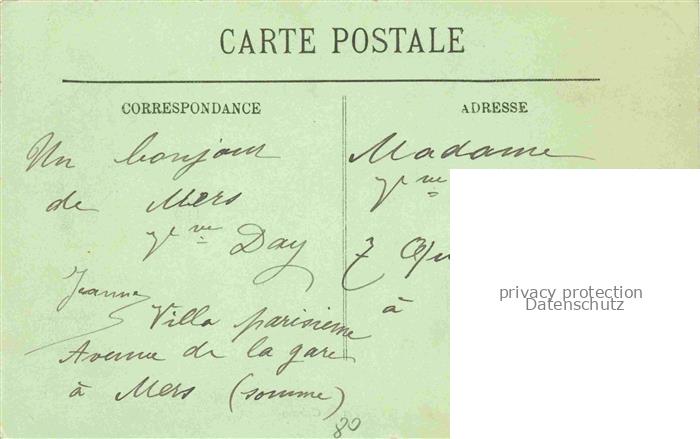 CARTE POSTALE
CORRESPONDANCE
ADRESSE
Un bonjour
de Mers
Day
Jeanne
Villa parisienne
Avenue de la gare
à Mers (somme)
80
Madame
7
à
privacy protection
Datenschutz